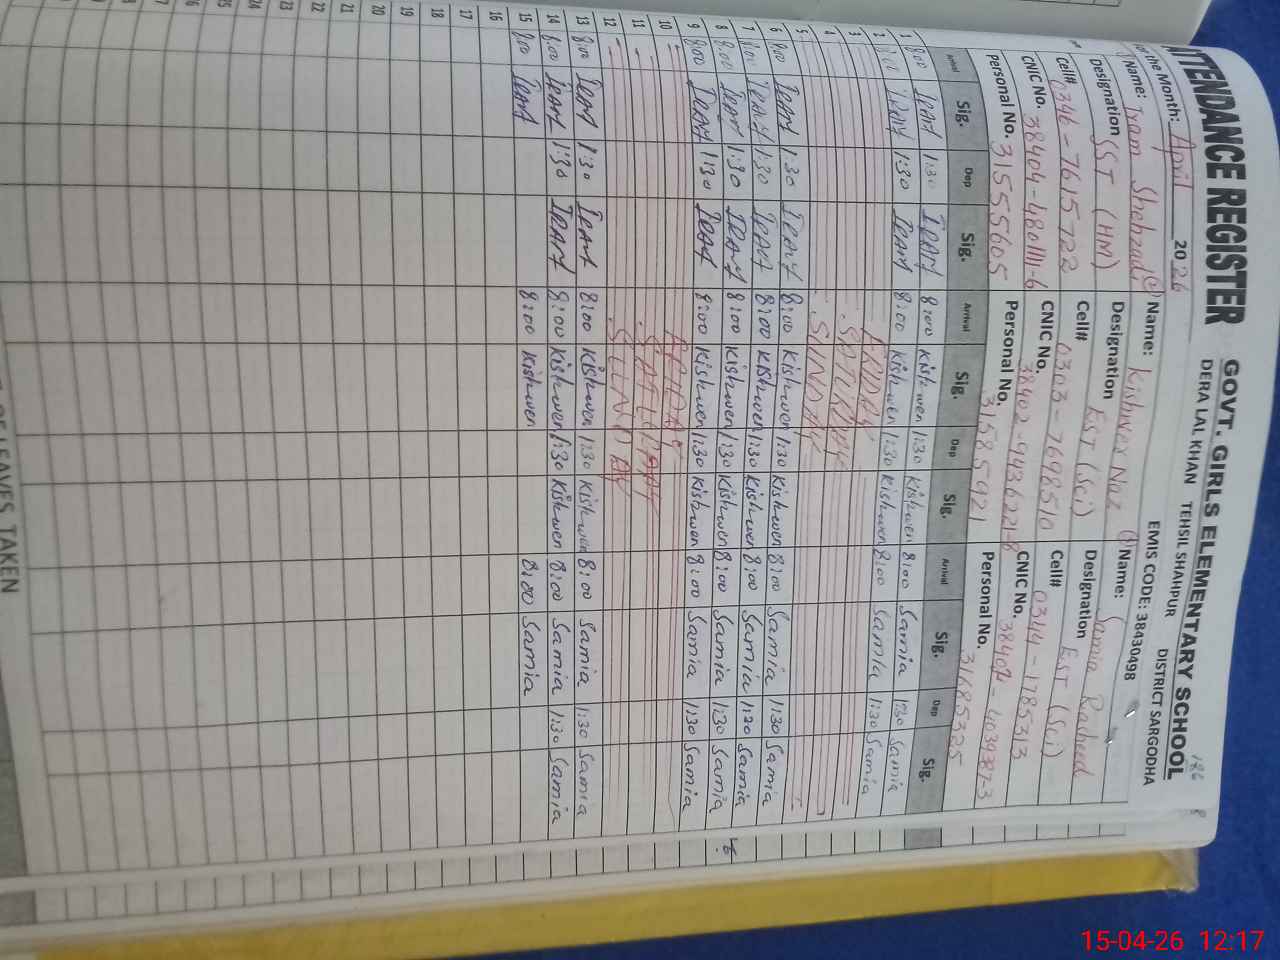 ATTENDANCE REGISTER
GOVT. GIRLS ELEMENTARY SCHOOL
DERA LAL KHAN TEHSIL SHAHPUR DISTRICT SARGODHA
EMIS CODE: 38430498
186
the Month: April 2026
Name: Iram Shehzadi
Designation SST (HM)
Cell# 0346-7615722
CNIC No.
Personal No. 31555605
Name: Kishwer Naz
Designation EST (Sci)
Cell# 0303-7698510
CNIC No.
Personal No. 31585921
Name: Samia Rasheed
Designation EST (Sci)
Cell# 0344-1785313
CNIC No.
Personal No. 31685325
Arrival Sig. Dep Sig. Arrival Sig. Dep Sig. Arrival Sig. Dep Sig.
1 8:00 IRAM 1:30 IRAM 8:00 Kishwen 1:30 Kishwen 8:00 Samia 1:30 Samia
2 IRAM 1:30 IRAM 8:00 Kishwen 1:30 Kishwen 8:00 Samia 1:30 Samia
3
4 SATURDAY
5 SUNDAY
6 8:00 IRAM 1:30 IRAM 8:00 Kishwen 1:30 Kishwen 8:00 Samia 1:30 Samia
7 8:00 IRAM 1:30 IRAM 8:00 Kishwen 1:30 Kishwen 8:00 Samia 1:30 Samia
8 8:00 IRAM 1:30 IRAM 8:00 Kishwen 1:30 Kishwen 8:00 Samia 1:30 Samia
9 8:00 IRAM 1:30 IRAM 8:00 Kishwen 1:30 Kishwen 8:00 Samia 1:30 Samia
10
11
12
13 8:00 IRAM 1:30 IRAM 8:00 Kishwen 1:30 Kishwen 8:00 Samia 1:30 Samia
14 8:00 IRAM 1:30 IRAM 8:00 Kishwen 1:30 Kishwen 8:00 Samia 1:30 Samia
15 8:00 IRAM 8:00 Kishwen 8:00 Samia
16
17
18
19
20
21
22
23
24
25
LEAVES TAKEN
15-04-26 12:17